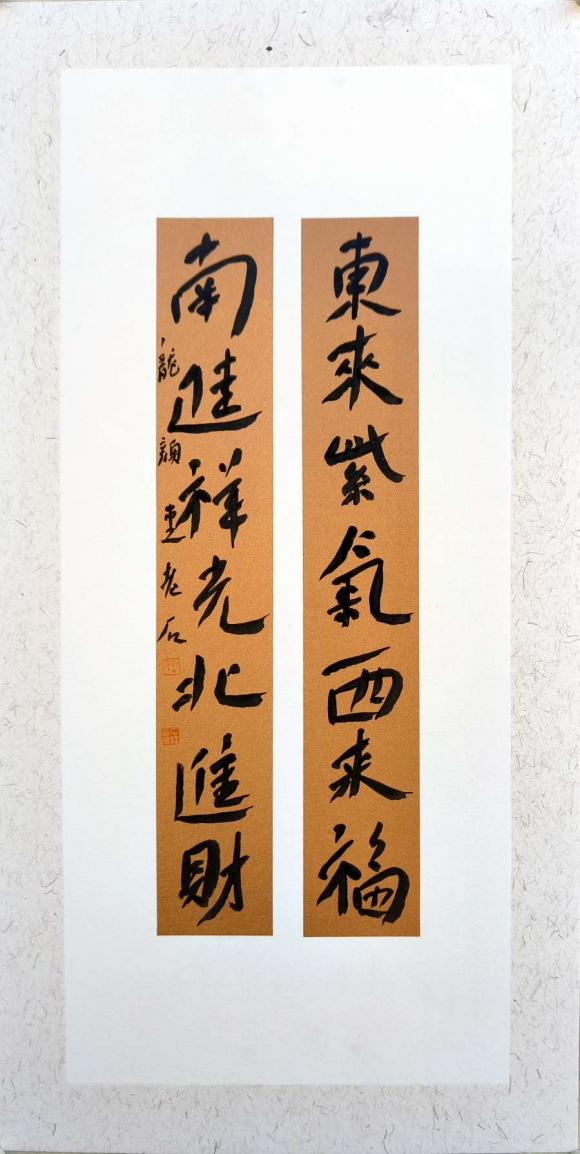 東來紫氣西来福
南進祥光北進財
龍顔重老石